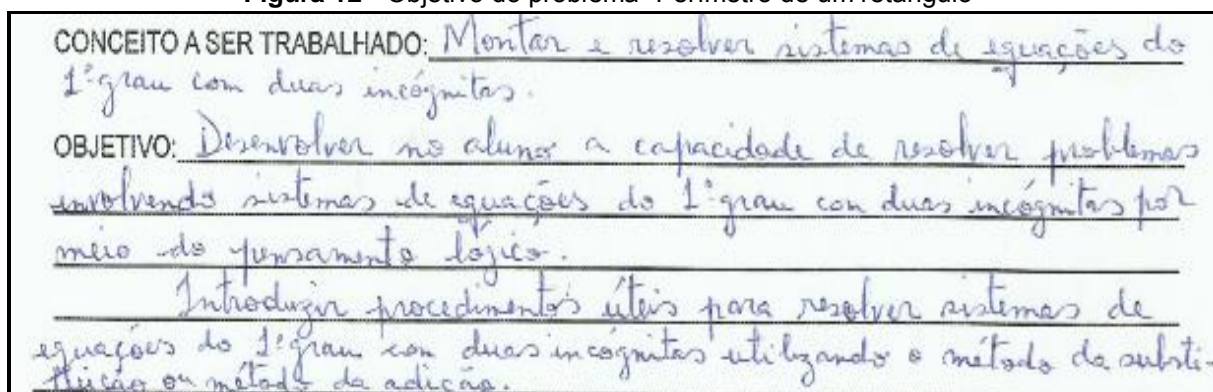 Figura 12 - Objetivo do problema "Perímetro de um retângulo"
CONCEITO A SER TRABALHADO: Montar e resolver sistemas de equações do
1º grau com duas incógnitas.
OBJETIVO: Desenvolver no aluno a capacidade de resolver problemas
envolvendo sistemas de equações do 1º grau con duas incógnitas por
meio do pensamento lógico.
Introduzir procedimentos úteis para resolver sistemas de
equações do 1º grau con duas incognitas utilizando o método da substi-
tuição ou método da adição.